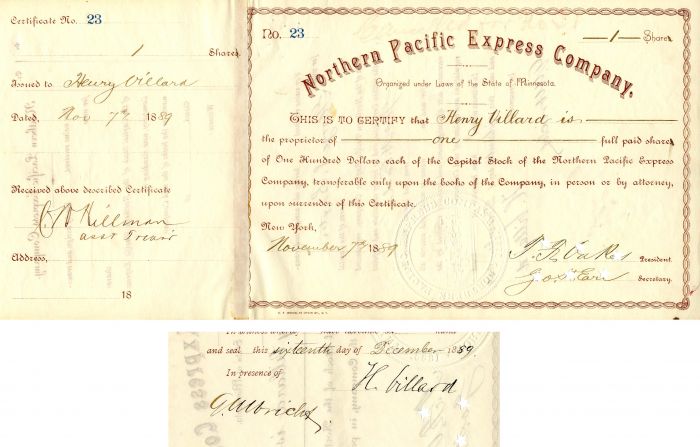 Certificate No. 23
1 Shares
Issued to Henry Villard
Dated, Nov 7th 1889
Received above described Certificate
asst Treas'r
Address,
18
No. 23
1 Shares
Northern Pacific Express Company.
Organized under Laws of the State of Minnesota.
THIS IS TO CERTIFY that Henry Villard is
the proprietor of one full paid shares
of One Hundred Dollars each of the Capital Stock of the Northern Pacific Express
Company, transferable only upon the books of the Company, in person or by attorney,
upon surrender of this Certificate.
New York,
November 7th 1889
T. F. Oakes President.
Geo. S. Earl Secretary.
and seal this sixteenth day of December 1889.
In presence of
H. Villard